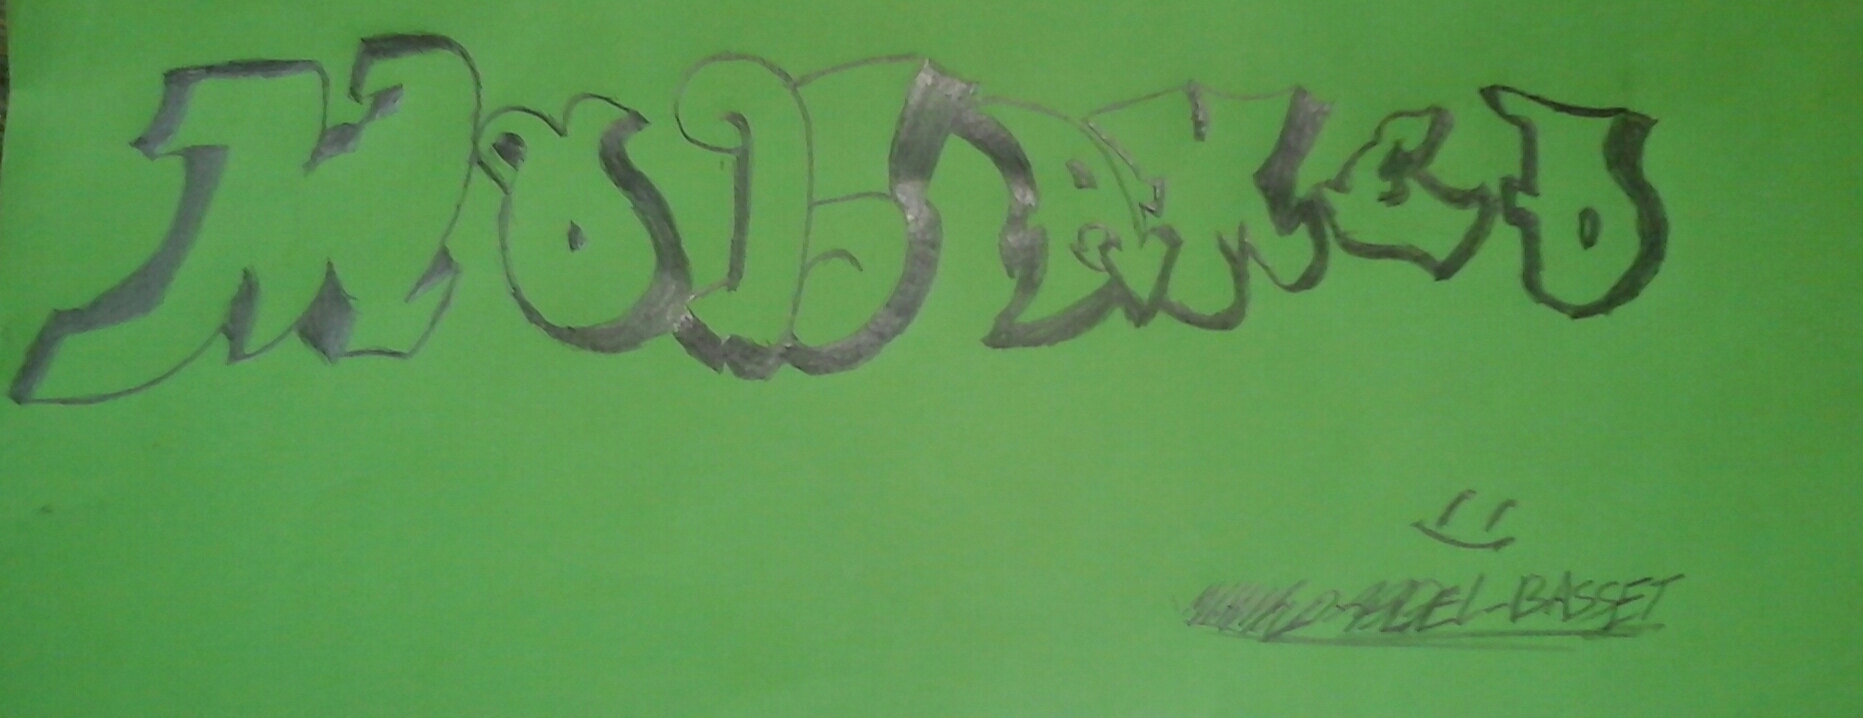 MOHAMED
ABDEL-BASSET